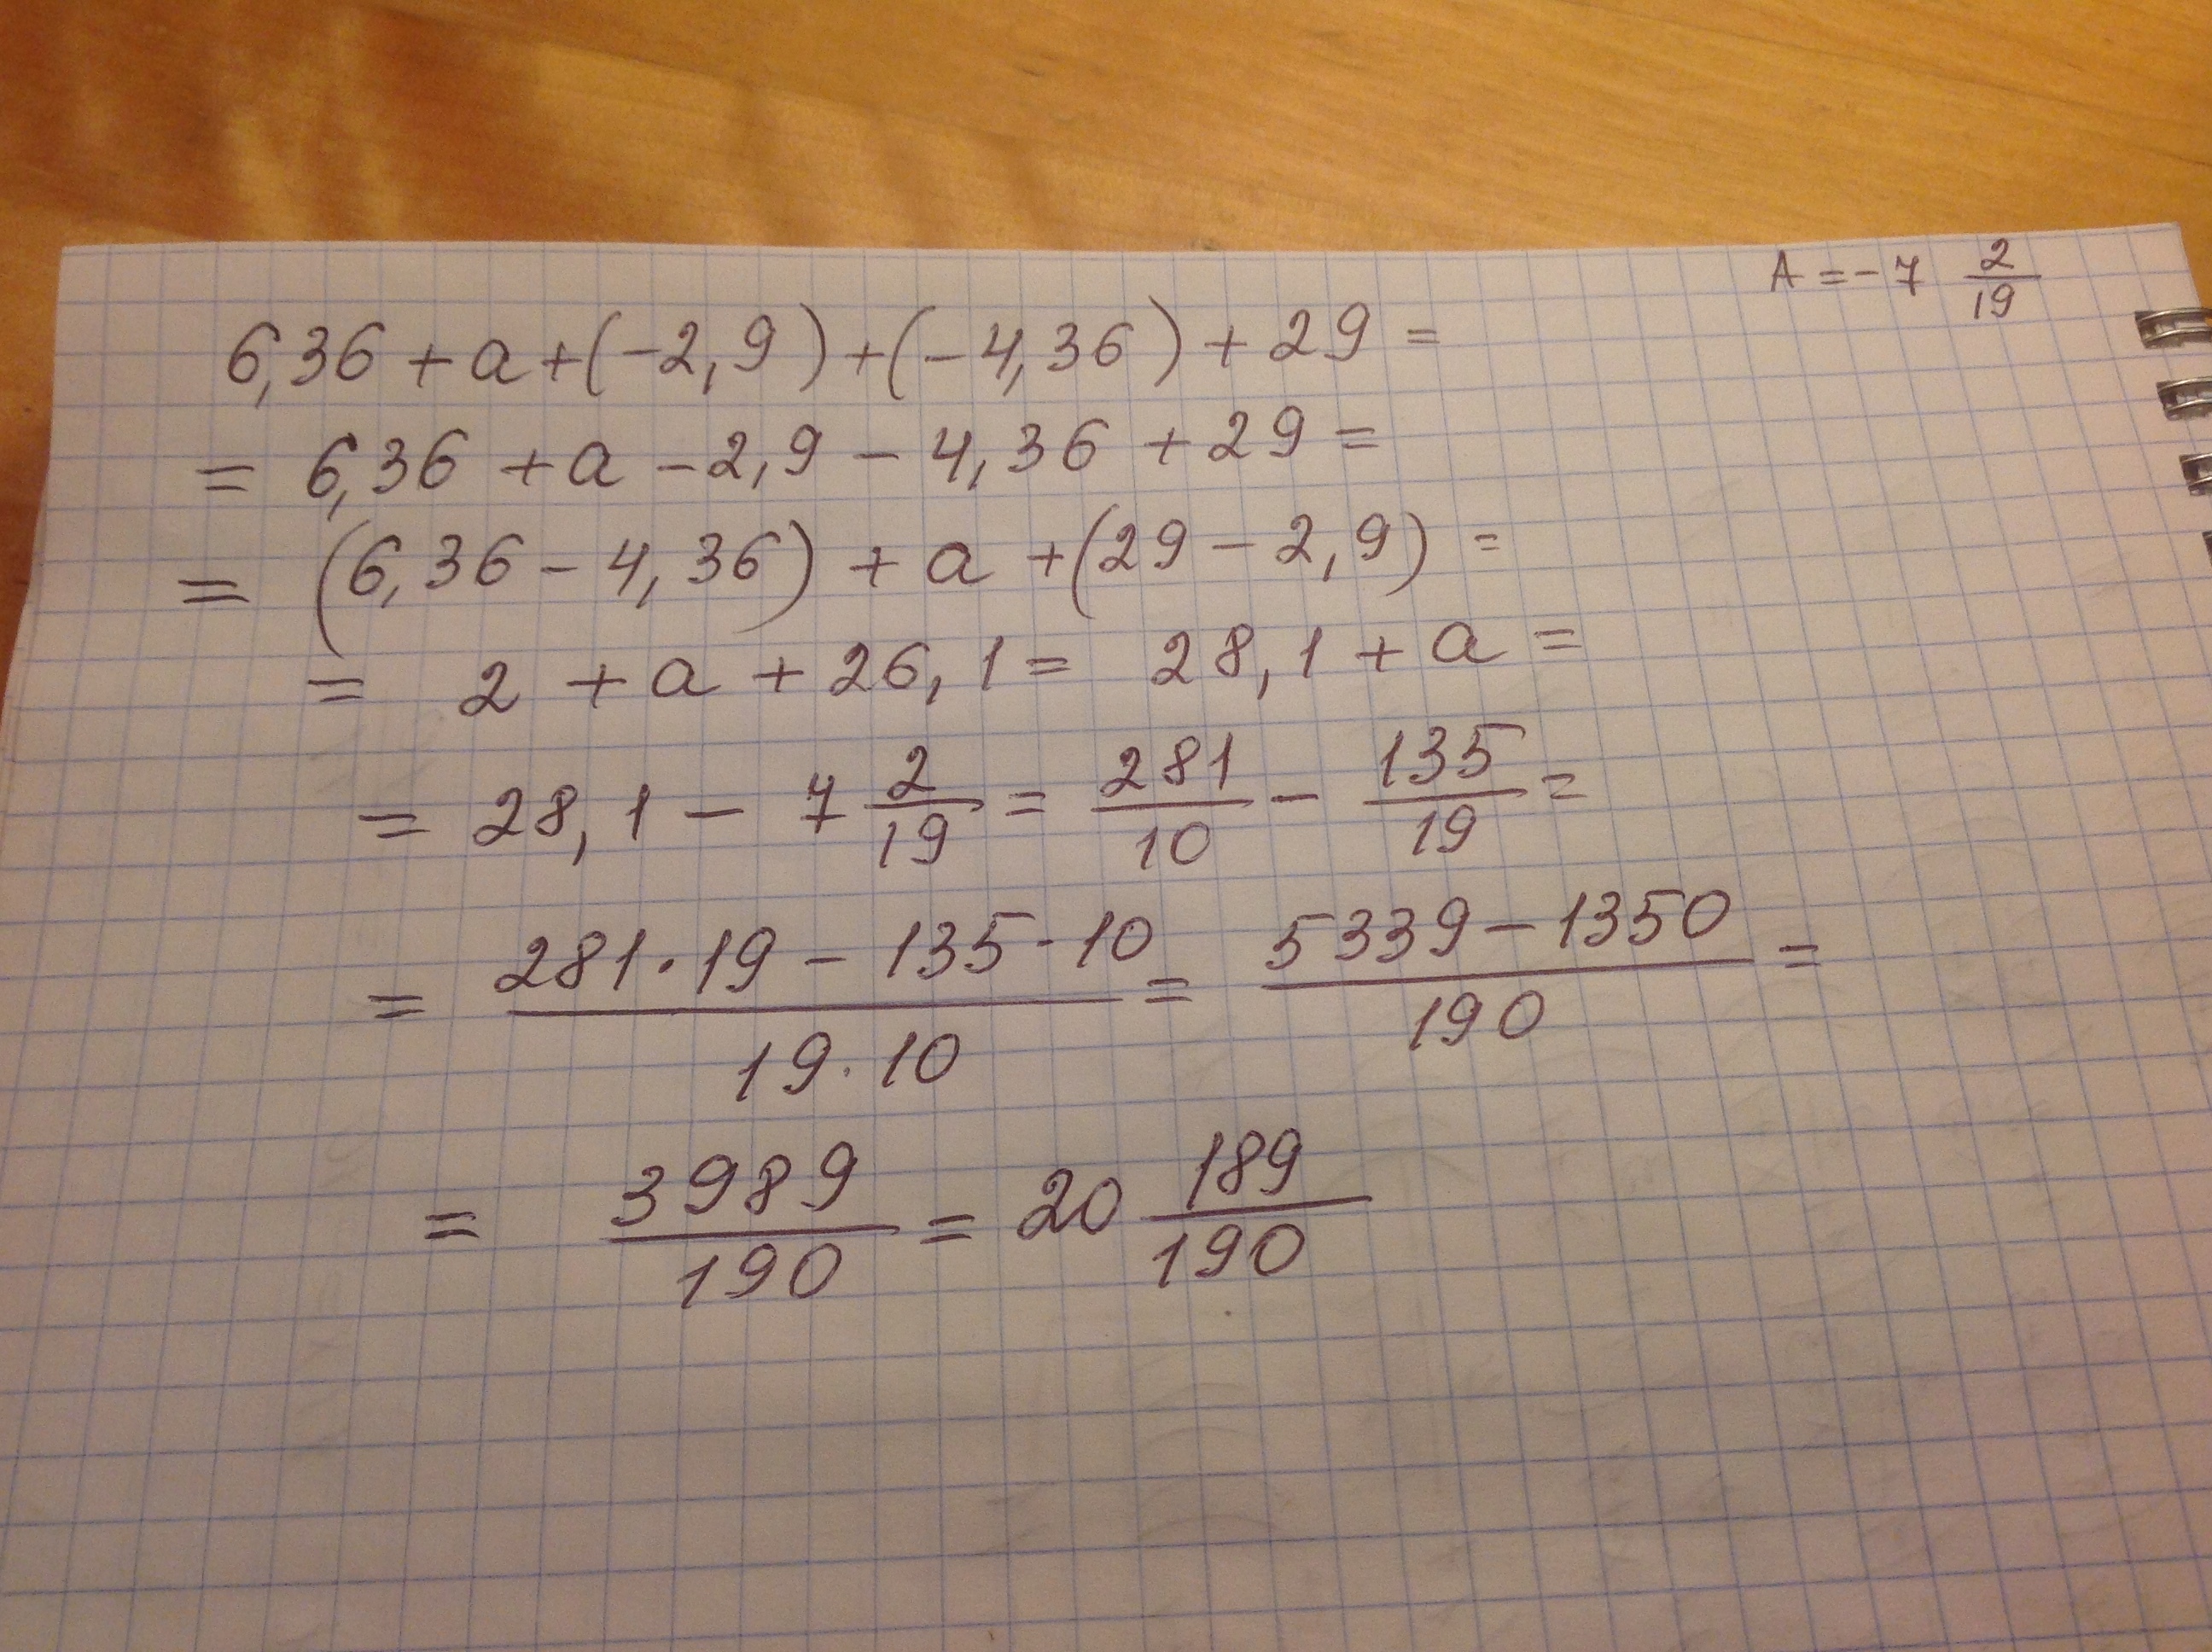 A = - 7 2/19
6,36 + a + (-2,9) + (-4,36) + 29 =
= 6,36 + a - 2,9 - 4,36 + 29 =
= (6,36 - 4,36) + a + (29 - 2,9) =
= 2 + a + 26,1 = 28,1 + a =
= 28,1 - 7 2/19 = 281/10 - 135/19 =
= (281·19 - 135·10)/(19·10) = (5339 - 1350)/190 =
= 3989/190 = 20 189/190